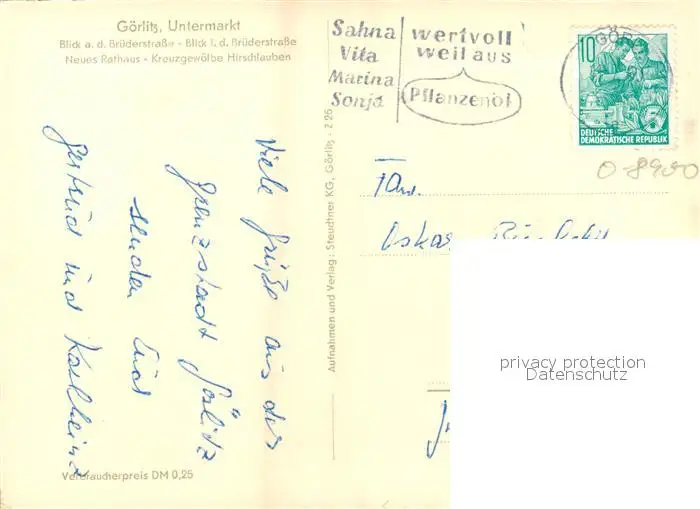 Görlitz, Untermarkt
Blick a. d. Brüderstraße - Blick i. d. Brüderstraße
Neues Rathaus - Kreuzgewölbe Hirschlauben
Sahna
Vita
Marina
Sonja
wertvoll
weil aus
Pflanzenöl
GÖR
10
5
DEUTSCHE
DEMOKRATISCHE REPUBLIK
O-8900
Viele Grüße aus der
Grenzstadt Görlitz
senden Euch
Gertrud und Karlheinz
Aufnahmen und Verlag: Steudtner KG, Görlitz - Z 26
Fam.
Oskar
privacy protection
Datenschutz
Verbraucherpreis DM 0,25